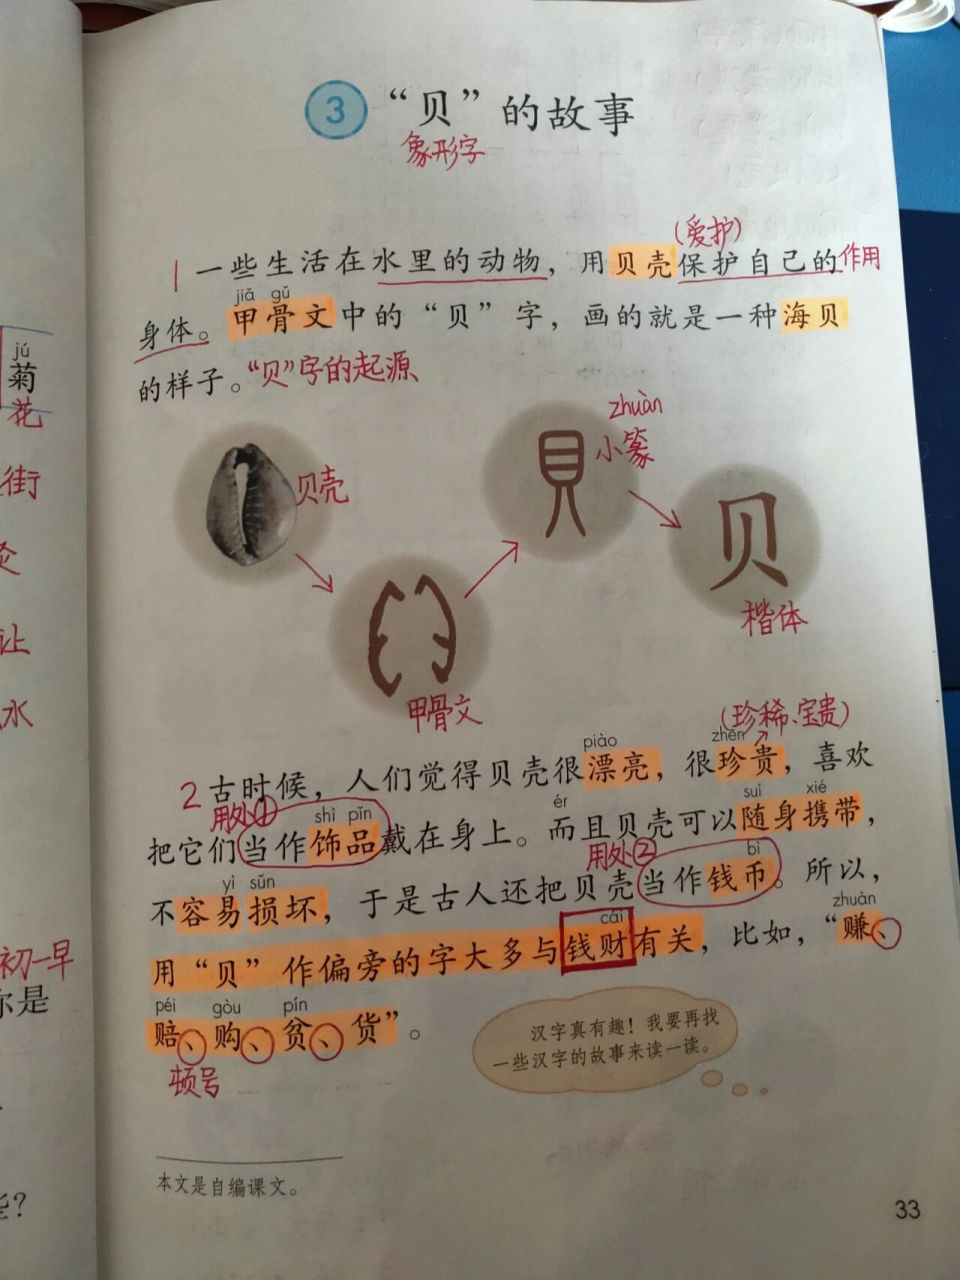 3 “贝”的故事
象形字
(爱护)
1 一些生活在水里的动物，用贝壳保护自己的作用
jiǎ gǔ
身体。甲骨文中的“贝”字，画的就是一种海贝
的样子。“贝”字的起源
jú
菊
花
街
让
水
初一早
你是
zhuàn
小篆
貝
贝壳
贝
楷体
甲骨文
(珍稀、宝贵)
piào zhēn
2 古时候，人们觉得贝壳很漂亮，很珍贵，喜欢
用处① shì pǐn ér suí xié
把它们当作饰品戴在身上。而且贝壳可以随身携带，
yì sǔn 用处② bì
不容易损坏，于是古人还把贝壳当作钱币。所以，
cái zhuàn
用“贝”作偏旁的字大多与钱财有关，比如，“赚、
péi gòu pín
赔、购、贫、货”。
顿号
汉字真有趣！我要再找
一些汉字的故事来读一读。
本文是自编课文。
33